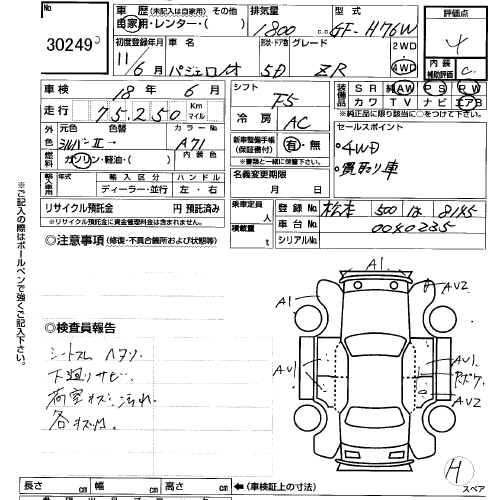 No. 30249
車歴 (未記入は自家用) その他
自家用・レンタカー・( )
排気量
1800 c.c.
型式
GF-H76W
評価点
4
初度登録年月
11/6月
車名
パジェロイオ
形状・ドア数
5D
グレード
ZR
2WD
4WD
内装
補助評価
C
車検 18年 6月
シフト
F5
装備
SR 純AW PS PW
カワ TV ナビ エアB
*純正品に限り該当に○をつけて下さい。
走行 75,250 Km マイル
冷房
AC
外色
元色 色替
シルバーII→
カラーNo
A71
新車整備手帳
(保証書付)
有・無
※書類と一緒に保管して下さい。
セールスポイント
○4WD
○買取り車
燃料
ガソリン・軽油・( )
内装色
名義変更期限
月 日
輸入車用
年式
輸入区分
ディーラー・並行
ハンドル
左・右
リサイクル預託金 円 預託済み
※リサイクル預託金に資金管理料金は含まれておりません。
乗車定員 人
積載量 t
登録No 松本 500 は 8145
車台No 0040235
シリアルNo
◎注意事項 (修復・不具合箇所および状態等)
※ご記入の際はボールペンで強くご記入下さい。
◎検査員報告
シートスレ ヘタリ
下廻りサビ
荷室キズ 汚れ
各キズ凹
A1
AU2
A1
AU1
AU1
AU2
H
スペア
長さ cm 幅 cm 高さ cm ←(車検証上の寸法)